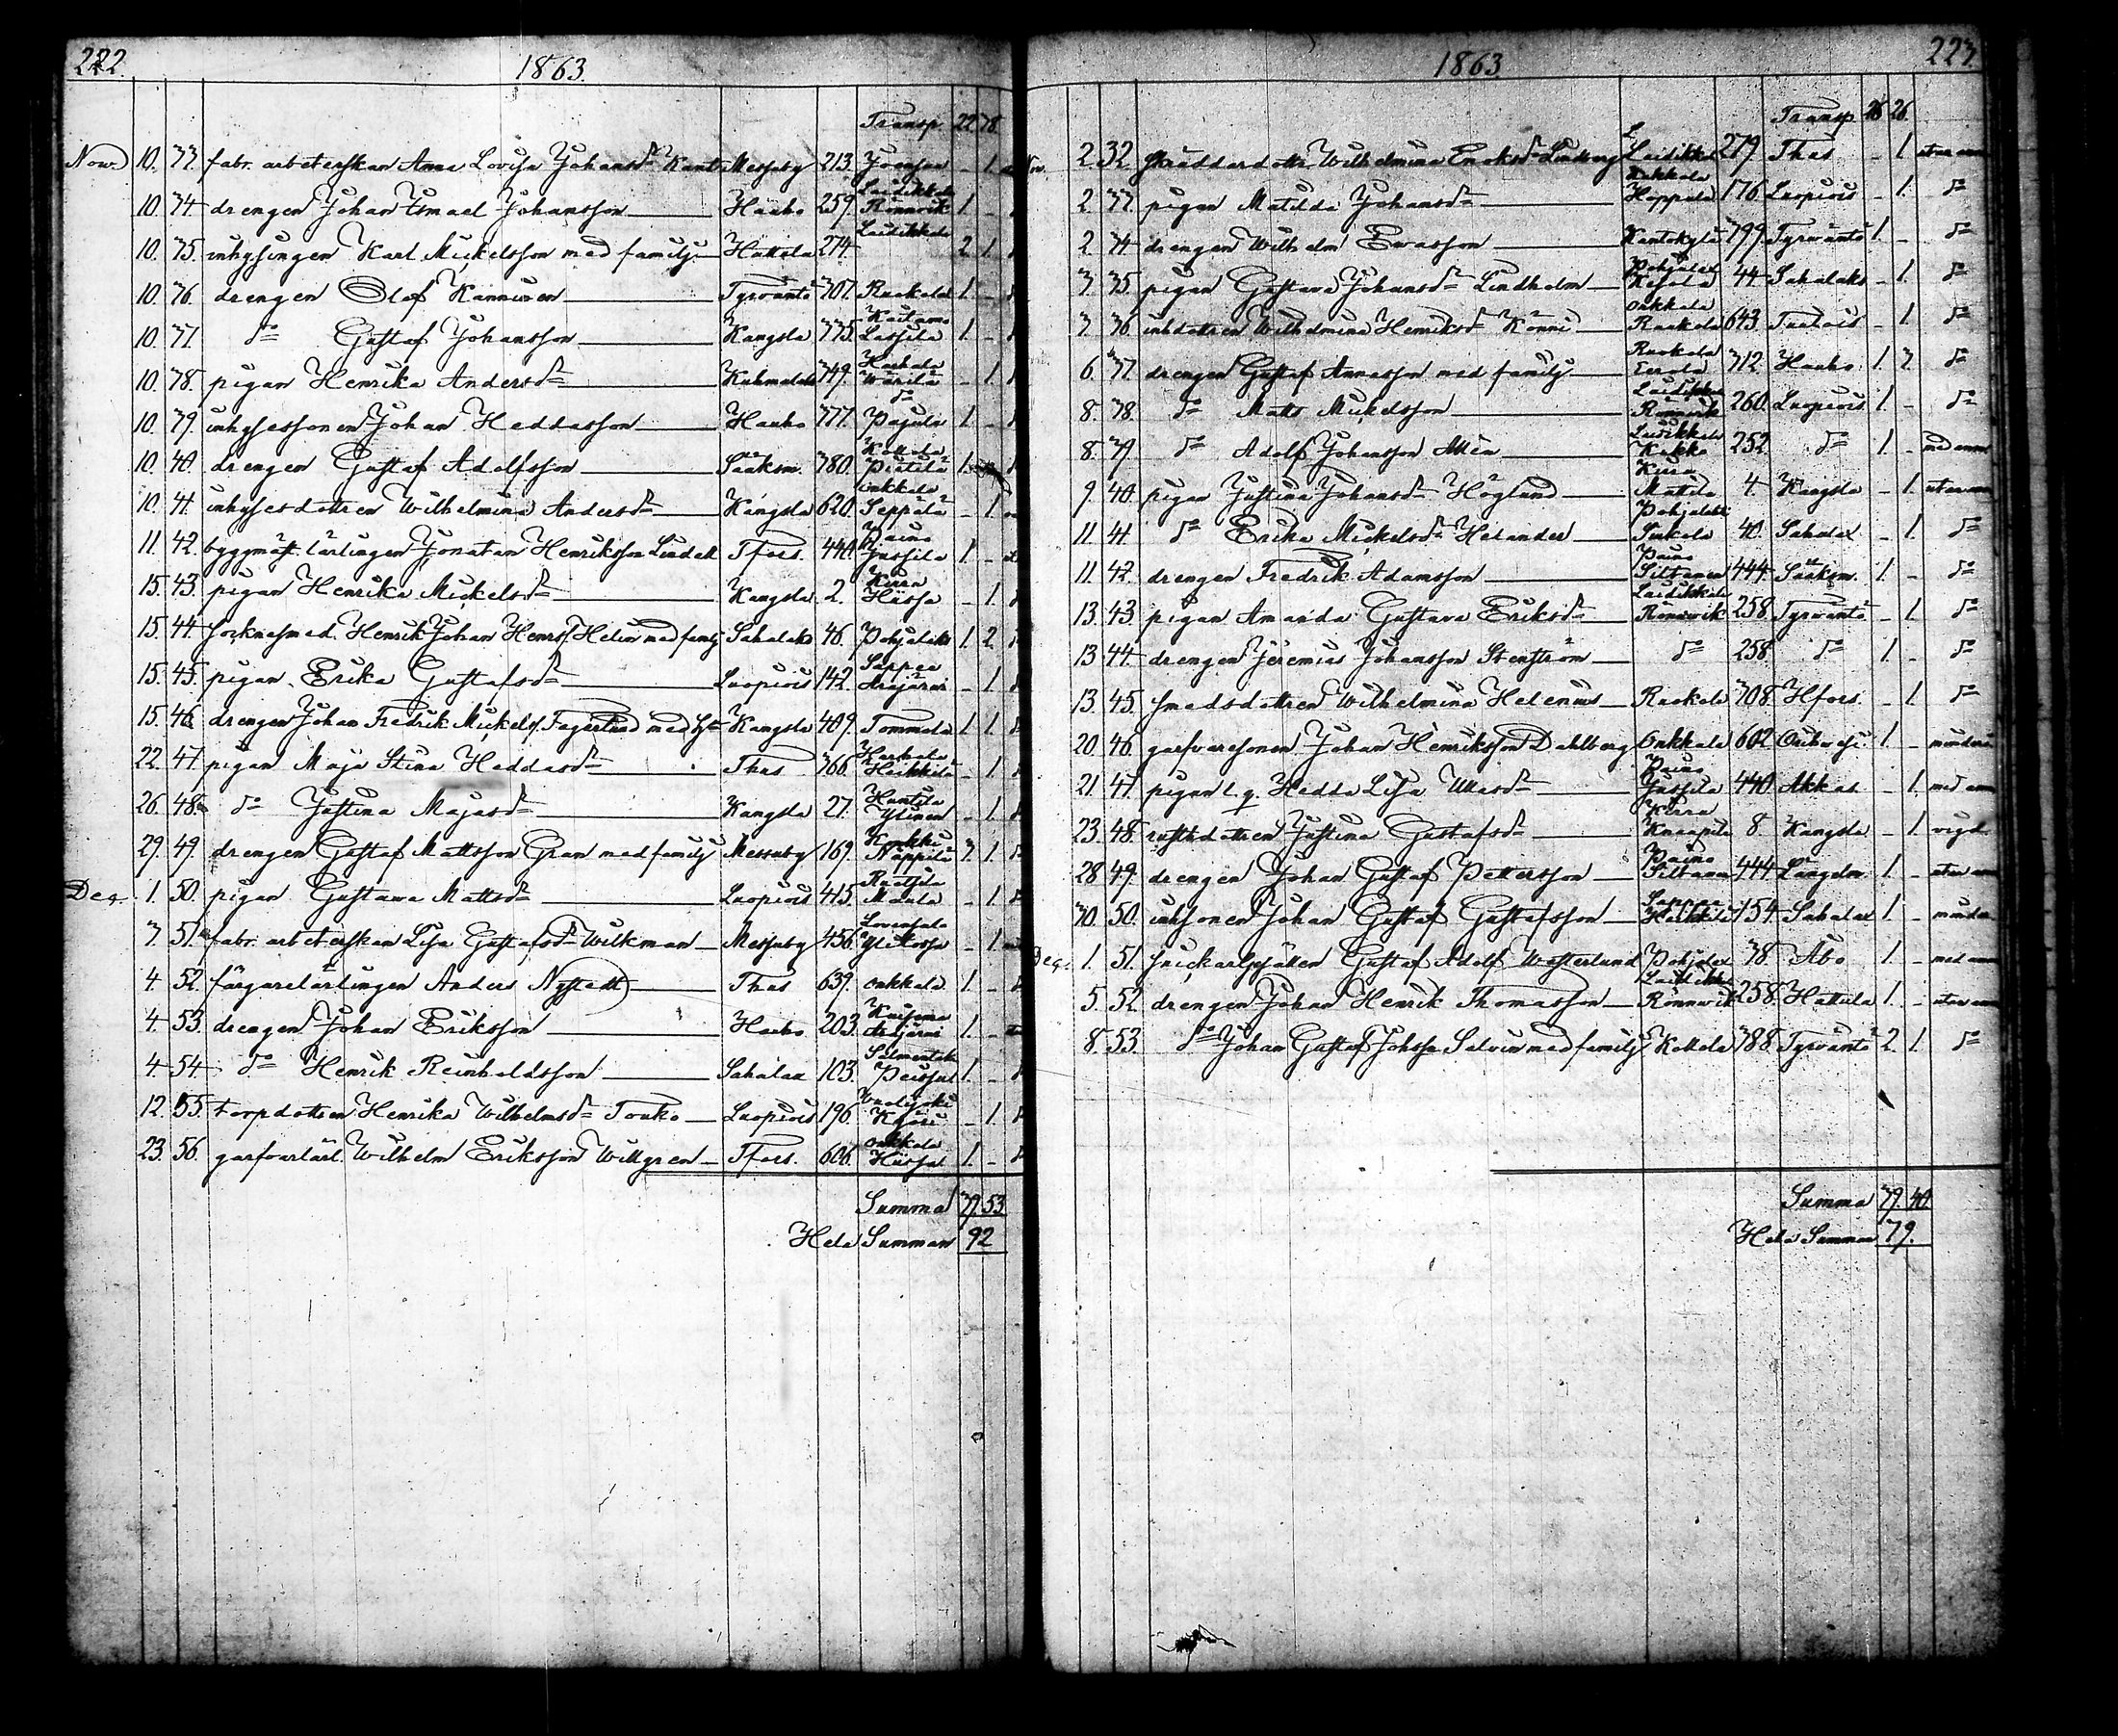 222.
1863.
Transp. 22 28.
Nov. 10. 33. fabr. arbeterskan Anna Lovisa Johansdr Messuby 213. 1.
10. 34 drengen Johan Ismael Johansson Hauho 259. Laidikkala Rönnvik 1. -
10. 35. inhysingen Karl Mickelsson med familj Hattula 274. Laidikkala 2 1.
10. 36. drengen Olof Kannisen Tyrvänto 707. Ruokola 1. -
10. 37. do Gustaf Johansson Kangsla 335. Lassila 1. -
10. 38. pigan Henrika Andersdr Kuhmalahti 749. Wärilä - 1.
10. 39. inhysessonen Johan Heddasson Hauho 777. do Pajula 1. -
10. 40. drengen Gustaf Adolfsson Sääksm. 780. Kottala Prättilä 1.
10. 41. inhysesdottren Wilhelmina Andersdr Kangsla 620. Onkkala Seppälä - 1.
11. 42. byggmäst. lärlingen Jonatan Henriksson Lindell Tfors. 440. Paino Jussila 1. -
15. 43. pigan Henrika Mickelsdr Kangsla 2. Kirra Hiissa - 1.
15. 44. sockensmed. Henrik Johan Henrss. Helin med familj Sahalaks 46. Pohjalaks 1. 2.
15. 45. pigan Erika Gustafsdr Luopiois 142. Sappee Arajärvi - 1.
15. 46. drengen Johan Fredrik Mickelss. Fagerlund med hu Kangsla 409. Tommola 1. 1.
22. 47. pigan Maja Stina Heddasdr Thus 366. Harhala Heikkilä - 1.
26. 48. do Justina Majasdr Kangsla 27. Huntila Ylinen - 1.
29. 49. drengen Gustaf Mattsson Gran med familj Messuby 169. Kuokki Näppilä 3. 1.
Dec. 1. 50. pigan Gustava Mattsdr Luopiois 415. - 1.
3. 51. fabr. arbeterskan Lisa Gustafsdr Wilkman Messuby 456. - 1.
4. 52. färgarelärlingen Anders Nystedt Thus 639. Onkkala 1. -
4. 53. drengen Johan Eriksson Hauho 203. Arajärvi 1. -
4. 54. do Henrik Reinholdsson Sahalax 103. Salmentaka 1. -
12. 55. torpdottren Henrika Wilhelmsdr Touko Luopiois 196. - 1.
23. 56. garfvarlärl. Wilhelm Eriksson Willgren Tfors. 606. Onkkala Hiissa 1. -
Summa 39. 53
Hela Summan 92
1863
223
Transp 26 26.
Nov. 2. 32. skräddardottr. Wilhelmina Enoksdr Lindberg Laidikkala 279 Thus - 1.
2. 33. pigan Matilda Johansdr 176. Luopiois - 1. do
2. 34 drengen Wilhelm Evasson Kantokylä 799. Tyrväntö 1. - do
3. 35. pigan Gustava Johansdr Lindholm Pohjalax 44 Sahalaks - 1. do
3. 36. inhdottren Wilhelmina Henriksdr Könni Onkkala Ruokola 643. - 1. do
6. 37. drengen Gustaf Annasson med familj Ruokola Eerola 712. Hauho. 1. 3. do
8. 38. do Matts Mickelsson Laidikkala Rönnvik 260. Luopiois 1. - do
8. 39. do Adolf Johansson Laidikkala Kukko 252. do 1. -
9. 40. pigan Justina Johansdr Höglund Kirra Mattila 4. Kangsla - 1.
11 41 do Erika Mickelsdr Helander Pohjalaks 40. Sahalax - 1. do
11. 42. drengen Fredrik Adamsson Paino Siltanen 444. Sääksm. 1. - do
13. 43. pigan Amanda Gustava Eriksdr Laidikkala Rönnvik 258. Tyrväntö - 1. do
13. 44. drengen Jeremias Johansson Stenström do 258. do 1. - do
13. 45. smedsdottren Wilhelmina Helenius Ruokola 708. Hfors. - 1. do
20. 46. garfvaresonen Johan Henriksson Dahlberg Onkkala 602. Orihvesi. 1. -
21. 47. pigan Hedda Lisa Ullasdr Paino Jussila 440 Akkas - 1.
23. 48. rusthdottren Justina Gustafsdr Kirra Knaapila 8. Kangsla - 1. vigd.
28 49. drengen Johan Gustaf Pettersson Paino Siltanen 444 Längelm. 1. -
30. 50. inhsonen Johan Gustaf Gustafsson Sappee Heikkilä 154. Sahalax 1. -
Dec. 1. 51. snickargesällen Gustaf Adolf Westerlund Pohjalax 38. Åbo 1. -
5. 52. drengen Johan Henrik Thomasson Laidikkala Rönnvik 258. Hattula 1. -
8. 53. do Johan Gustaf Johsson Salvin med familj Kottala 788. Tyrväntö 2. 1. do
Summa 39. 40.
Hela Summan 79.